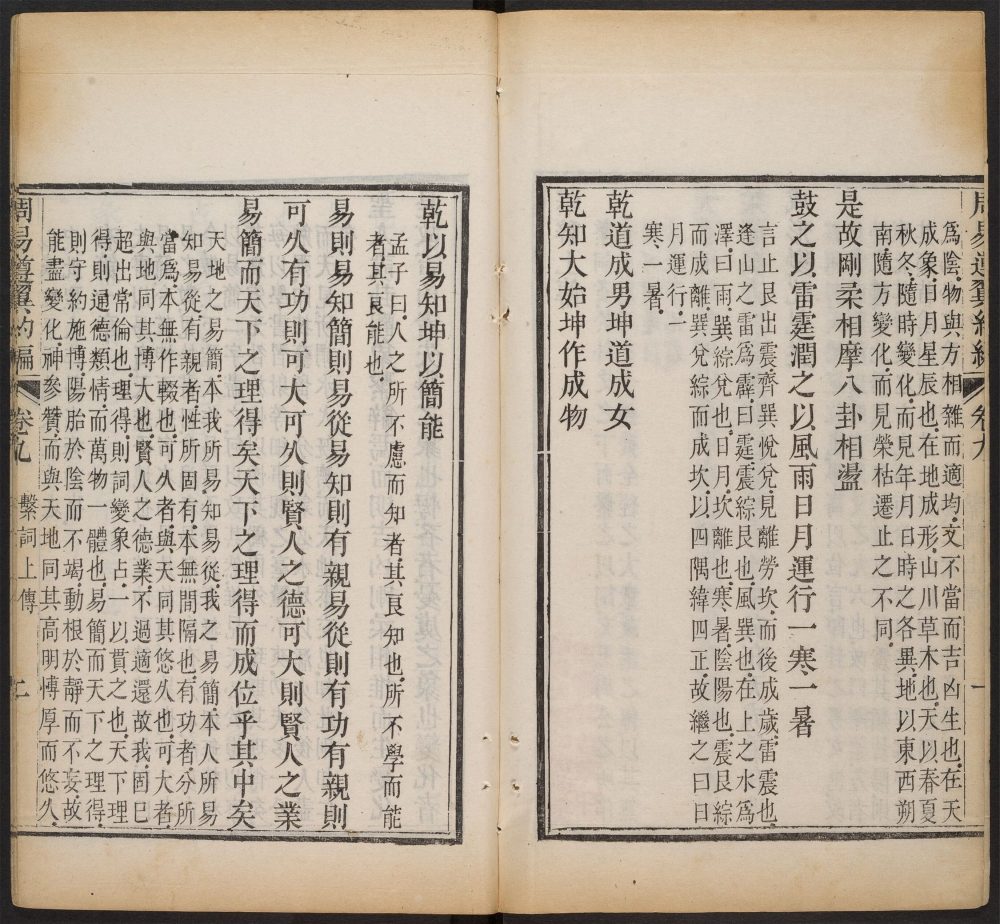 周易遵翼約編 卷九 一
爲陰物與方相雜而適均文不當而吉凶生也在天
成象日月星辰也在地成形山川草木也天以春夏
秋冬隨時變化而見年月日時之各異地以東西朔
南隨方變化而見榮枯遷止之不同
是故剛柔相摩八卦相盪
鼓之以雷霆潤之以風雨日月運行一寒一暑
言止艮出震齊巽悅兌見離勞坎而後成歲雷震也
逢山之雷爲霹曰霆震綜艮也風巽也在上之水爲
澤曰雨巽綜兌也日月坎離也寒暑陰陽也震艮綜
而成離巽兌綜而成坎以四隅緯四正故繼之曰日
月運行一
寒一暑
乾道成男坤道成女
乾知大始坤作成物
乾以易知坤以簡能
孟子曰人之所不慮而知者其良知也所不學而能
者其良能也
易則易知簡則易從易知則有親易從則有功有親則
可久有功則可大可久則賢人之德可大則賢人之業
易簡而天下之理得矣天下之理得而成位乎其中矣
天地之易簡本我所易知易從我之易簡本人所易
知易從有親者性所固有本無間隔也有功者分所
當爲本無作輟也可久者與天同其悠久也可大者
與地同其博大也賢人之德業不過適還故我固已
超出常倫也理得則詞變象占一以貫之也天下理
得則通德類情而萬物一體也易簡而天下之理得
則守約施博陽胎於陰而不竭動根於靜而不妄故
能盡變化神參贊而與天地同其高明博厚而悠久
周易遵翼約編 卷九 繫詞上傳 二